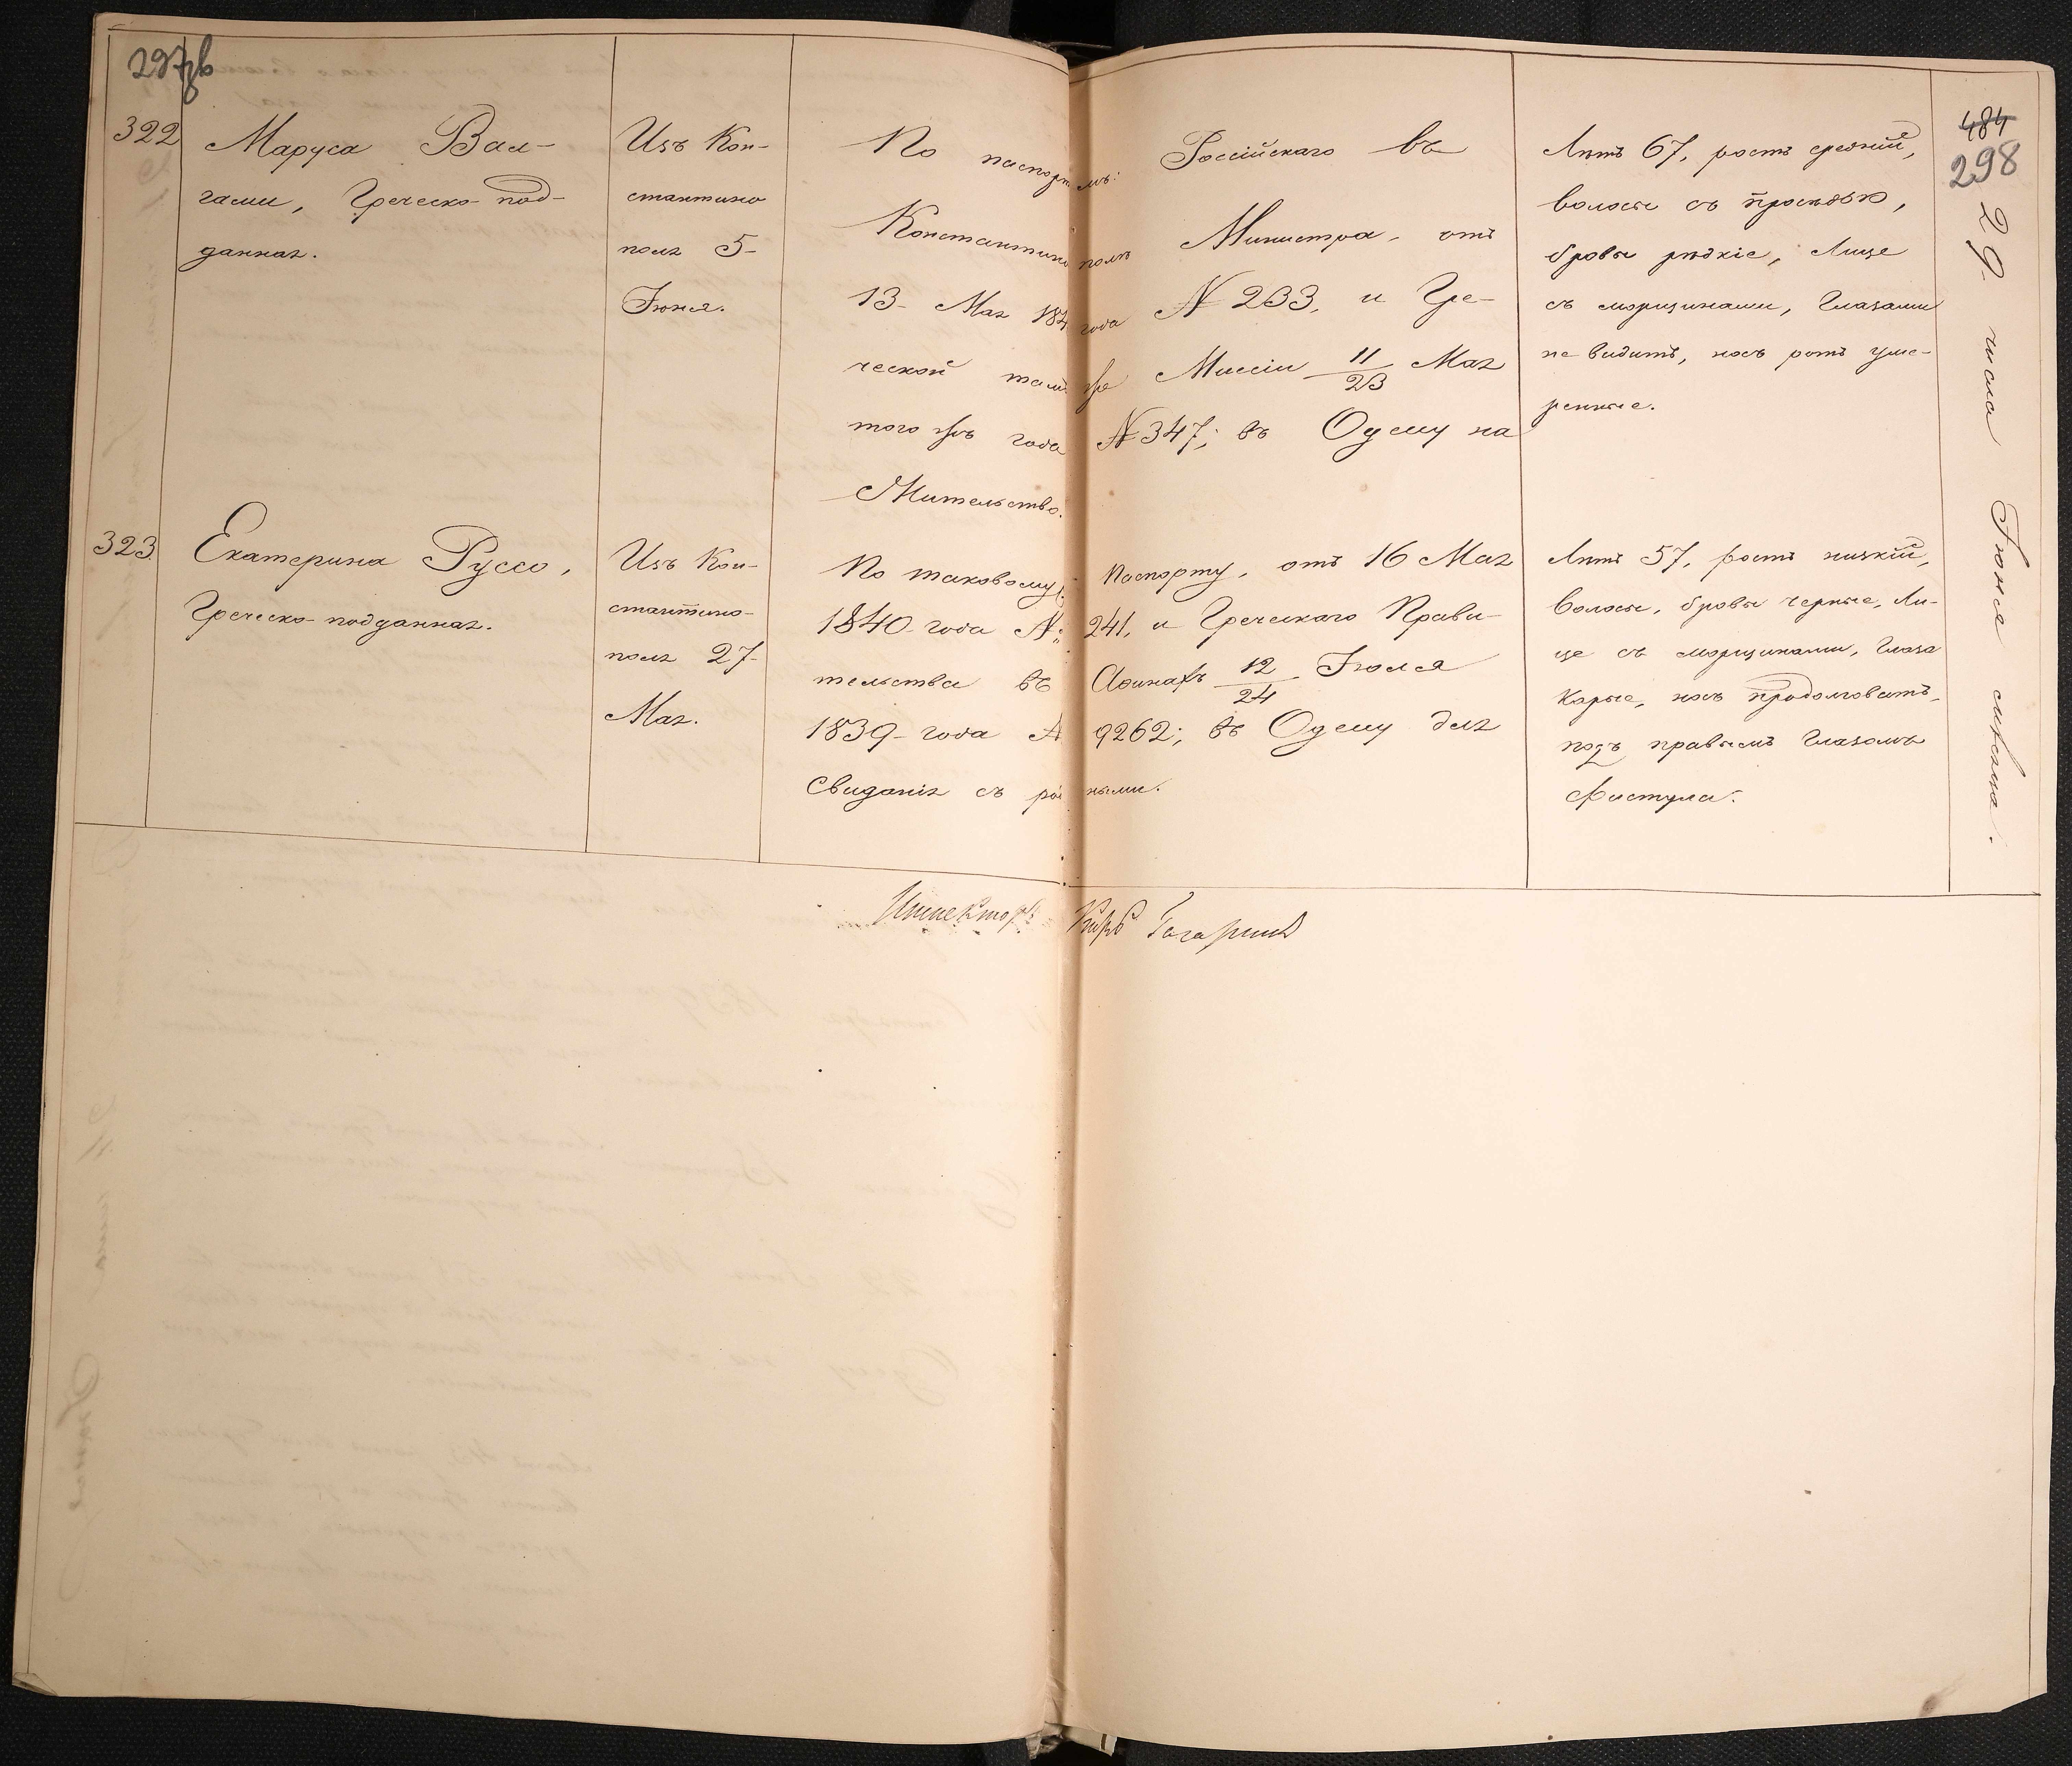 297 об
484
298
322
Маруса Вал-
гами, Греческо-под-
данная.
Изъ Кон-
стантино
поля 5-
Іюня.
По паспортамъ: Россійскаго въ
Константинополѣ Министра, отъ
13- Мая 184 года № 233, и Гре-
ческой тамъ же Миссіи 11/23 Мая
того жъ года № 347; въ Одессу на
Жительство.
Лѣтъ 67, ростъ средній,
волосы съ просѣдью,
брови рѣдкіе, Лице
съ морщинами, Глазами
не видитъ, носъ ротъ уме-
ренные.
323
Екатерина Руссо,
Греческо-подданная.
Изъ Кон-
стантино-
поля 27-
Мая.
По таковому паспорту, отъ 16 Мая
1840- года №: 241, и Греческаго Прави-
тельства въ Аѳинахъ 12/24 Іюля
1839- года № 9262; въ Одессу для
Свиданія съ родными.
Лѣтъ 57, ростъ низкій,
Волосы, брови черные, Ли-
це съ морщинами, Глаза
Карые, носъ продолговатъ,
подъ правымъ Глазомъ
Фистула.
29- числа Іюня мѣсяца.
Инспекторъ Князь Гагаринъ